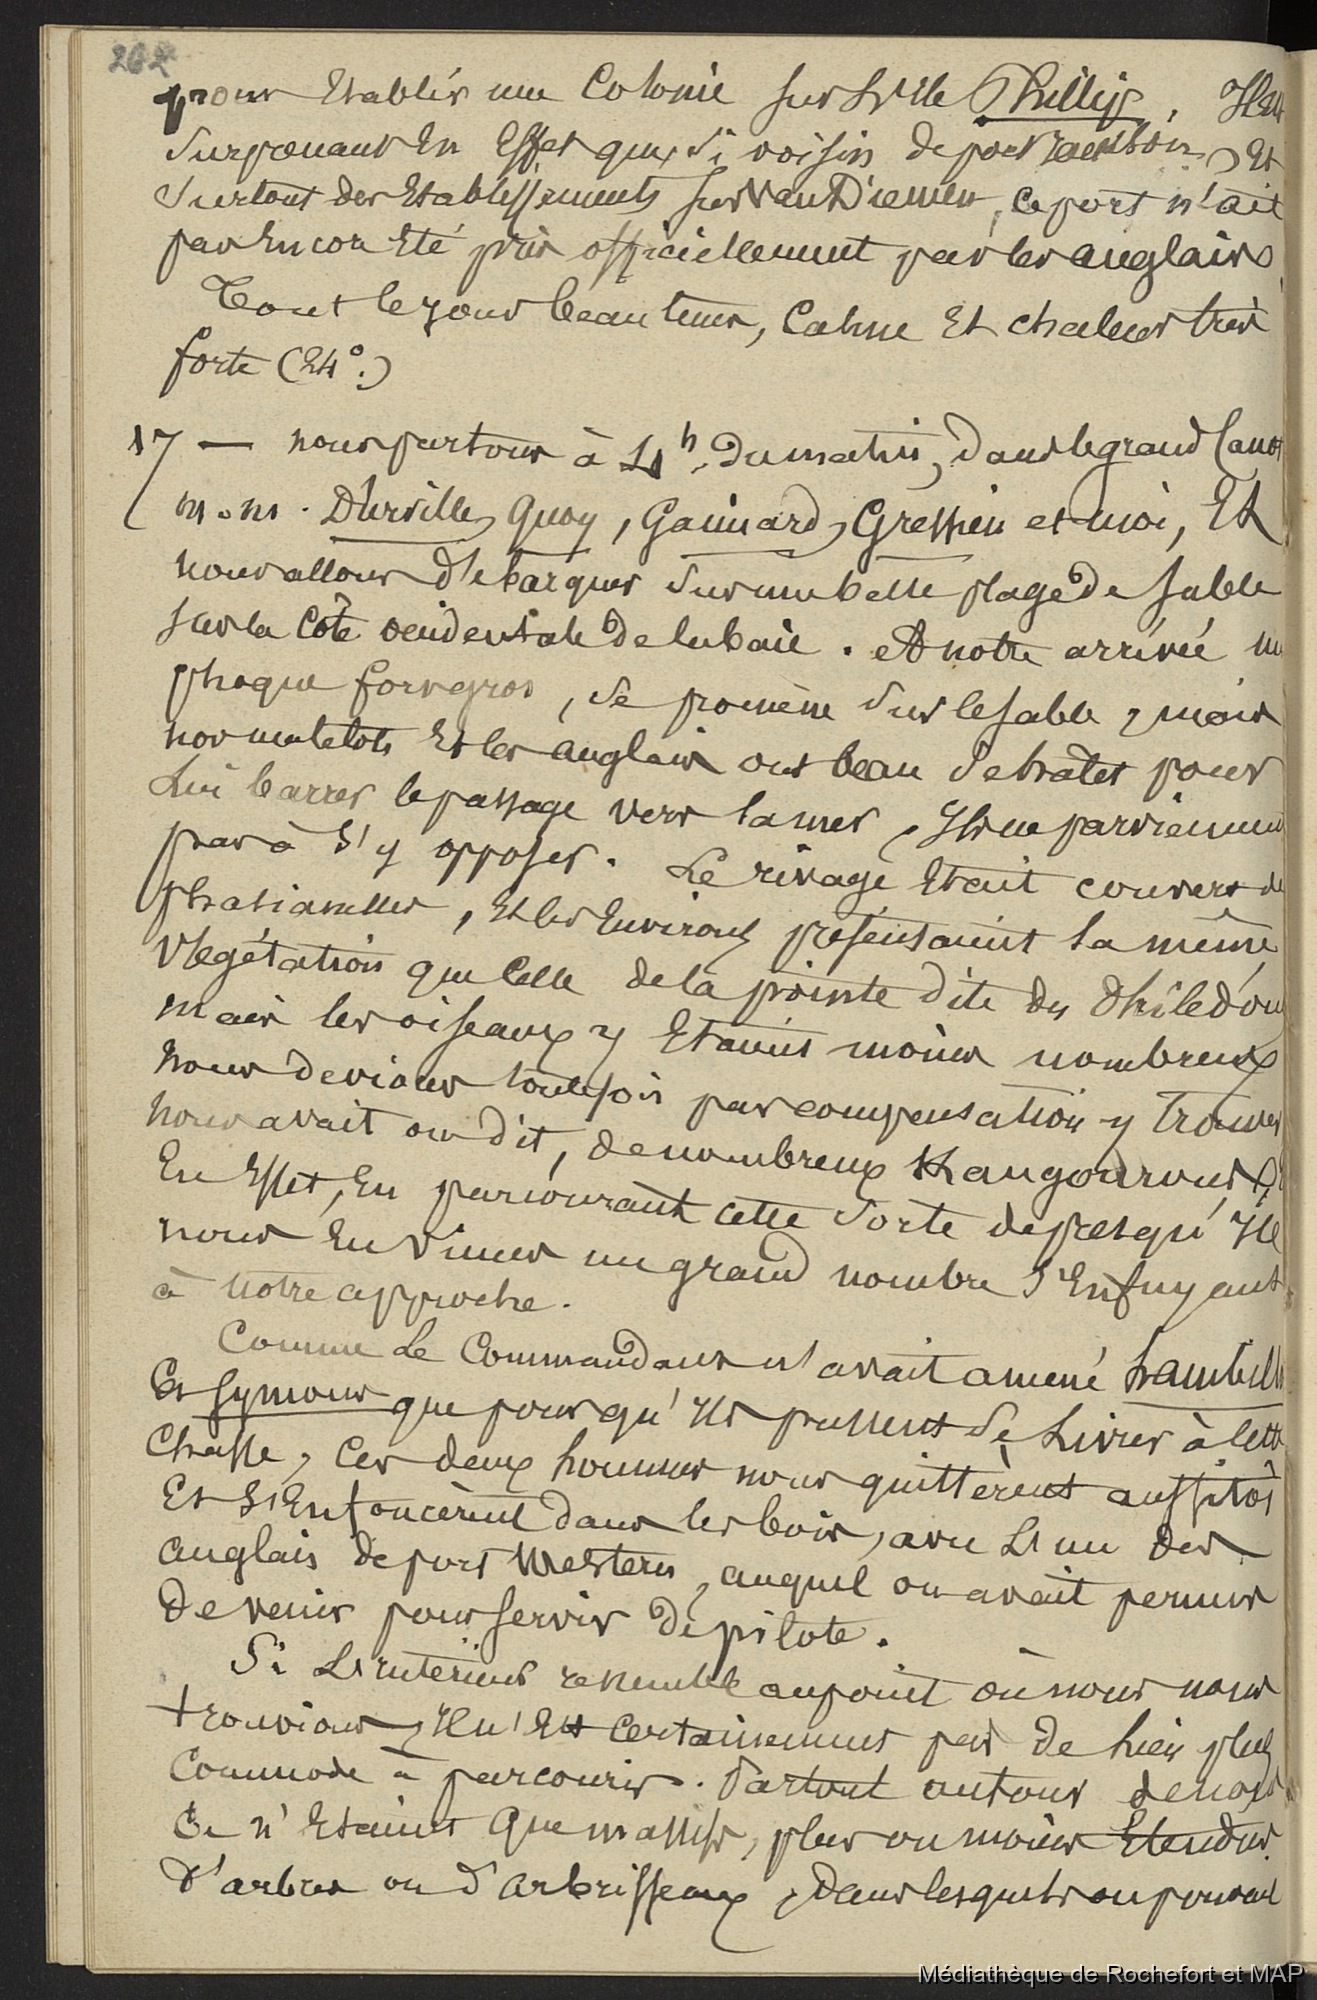 262
pour Etablir une Colonie sur L'ile Phillip. Il est
Surprenant En Effet que, Si voisin de port Jackson, Et
Surtout des Etablissements sur Van Diemen, ce port n'ait
pas Encor Eté pris officiellement par les anglais.
Tout le jour beau tems, Calme Et chaleur très
forte (24°.)
17 — nous partons à 4h. du matin, dans le grand Canot
M.M. D'urville, Quoy, Gaimard, Gressien et moi, Et
nous allons débarquer Sur une belle plage de sable
sur la Côte occidentale de la baie. A notre arrivée un
phoque fort gros, Se promène Sur le sable, mais
nos matelots Et les anglais ont beau Se hater pour
Lui barrer le passage vers la mer, Ils ne parviennent
pas à S'y opposer. Le rivage Etait couvert de
phasianelles, Et les Environs présentaient la même
Végétation que Celle de la pointe dite du Philédon
mais les oiseaux y Etaient moins nombreux
nous devions toutefois par compensation y trouver
nous avait on dit, de nombreux Kangourous, &
En Effet, En parcourant cette Sorte de presqu'Ile
nous En Vimes un grand nombre S'Enfuyant
à notre approche.
Comme Le Commandant n'avait amené hambilton
Et Symour que pour qu'Ils pussent Se Livrer à Cette
Chasse, Ces deux hommes nous quittèrent aussitôt
Et S'Enfoncèrent dans les bois, avec L'un des
anglais de port Western, auquel on avait permis
de venir pour servir de pilote.
Si L'intérieur ressemble au point où nous nous
trouvions, Il n'Est certainement pas de lieu plus
Commode à parcourir. Partout autour de nous
Ce n'Etaient Que massifs, plus ou moins Etendus
d'arbres ou d'arbrisseaux, dans lesquels on pouvait
Médiathèque de Rochefort et MAP